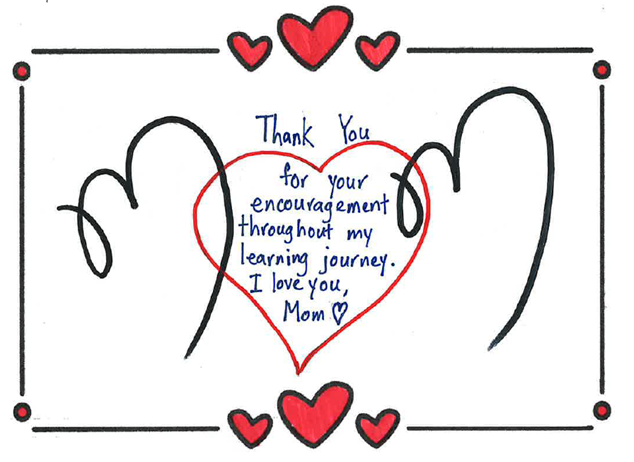 Thank You
for your
encouragement
throughout my
learning journey.
I love you,
Mom ♡